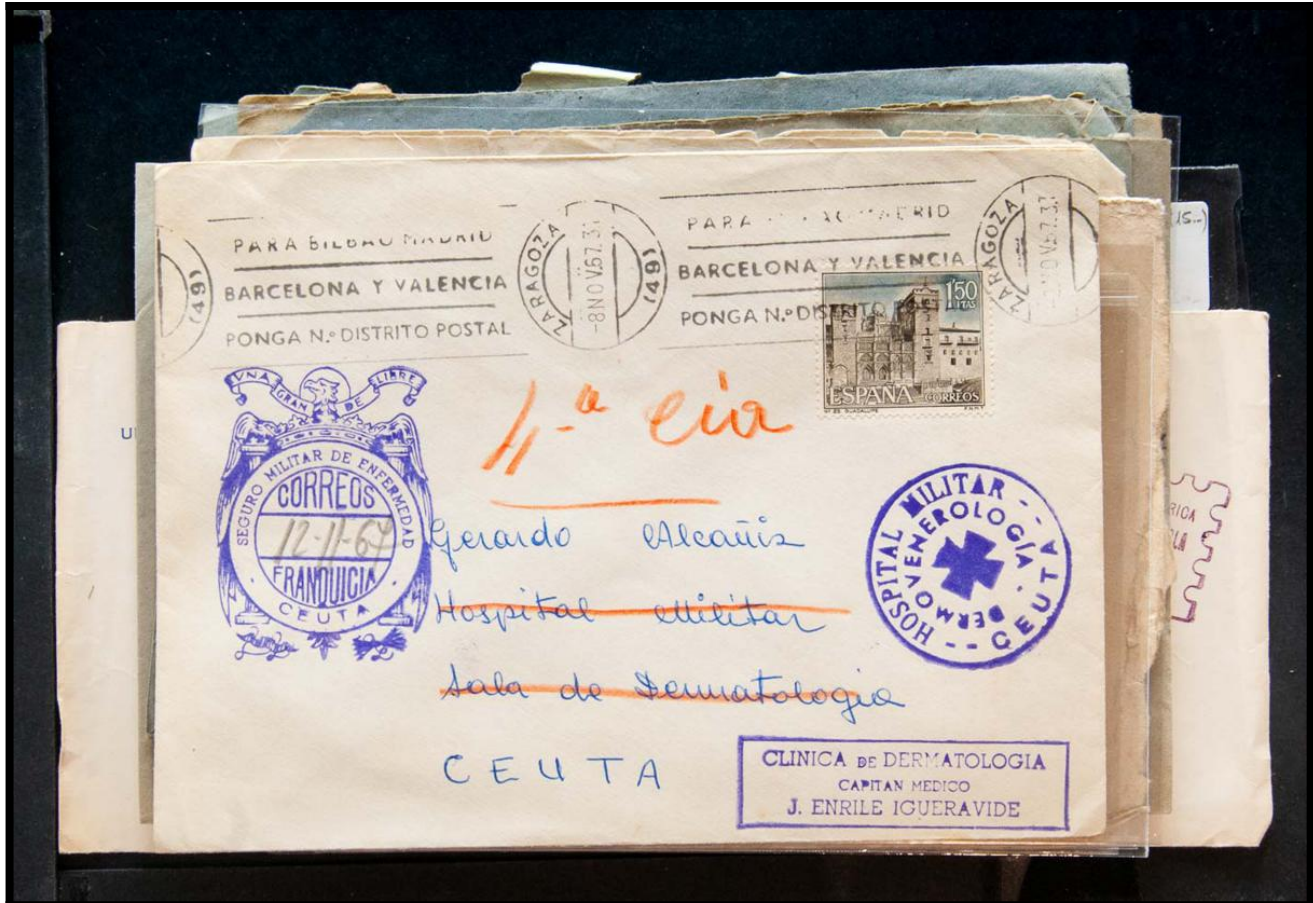 PARA BILBAO MADRID
BARCELONA Y VALENCIA
PONGA N.º DISTRITO POSTAL
(49)
ZARAGOZA
-8NOV.67.3
(49)
PARA MADRID
BARCELONA Y VALENCIA
PONGA N.º DISTRITO
ZARAGOZA
NOV.67.3
1'50
PTAS
ESPAÑA CORREOS
GUADALUPE
F.N.M.T.
UNA GRANDE LIBRE
SEGURO MILITAR DE ENFERMEDAD
CORREOS
12-11-67
FRANQUICIA
CEUTA
4.ª cia
Gerardo Alcañiz
Hospital Militar
Sala de Dermatologia
CEUTA
HOSPITAL MILITAR -- CEUTA --
DERMOVENEROLOGÍA
CLINICA DE DERMATOLOGIA
CAPITAN MEDICO
J. ENRILE IGUERAVIDE